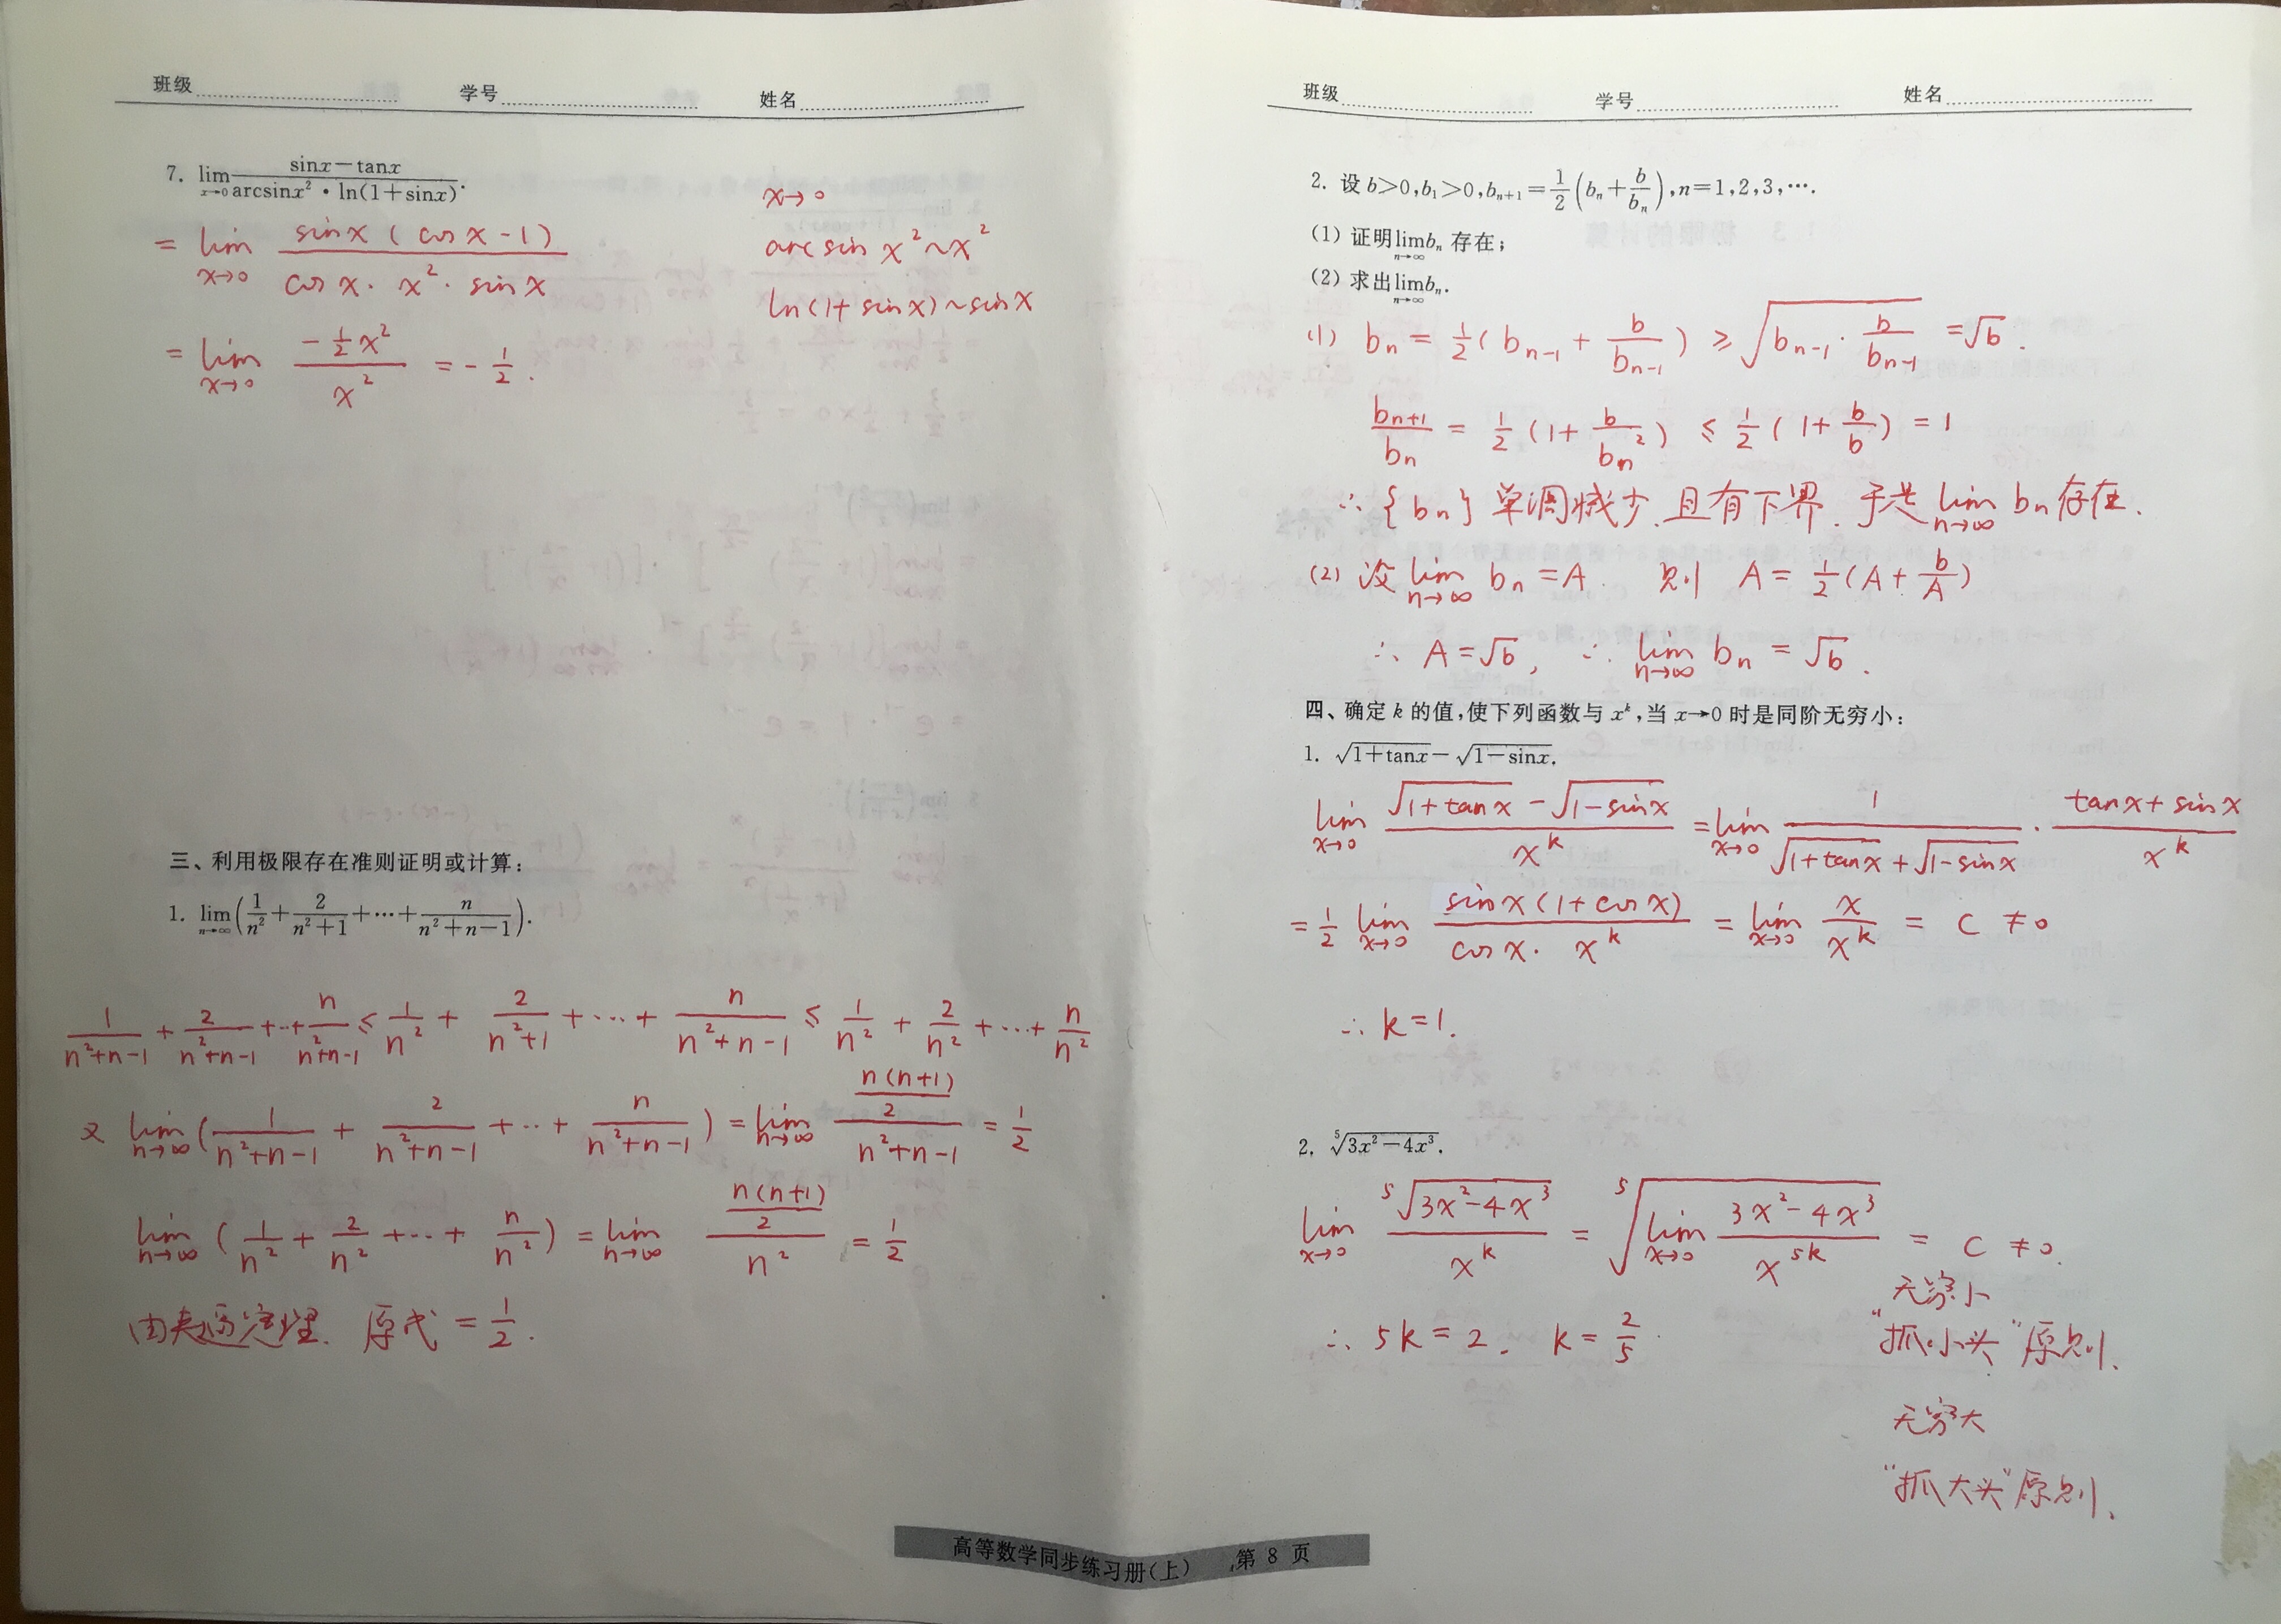 班级 学号 姓名
7. lim_{x→0} (sinx−tanx)/(arcsinx²·ln(1+sinx)).
= lim_{x→0} (sinx(cosx−1))/(cosx·x²·sinx)
= lim_{x→0} (−½x²)/(x²) = −1/2.
x→0
arcsin x² ~ x²
ln(1+sinx) ~ sinx
三、利用极限存在准则证明或计算:
1. lim_{n→∞} (1/n² + 2/(n²+1) + ⋯ + n/(n²+n−1)).
1/(n²+n−1) + 2/(n²+n−1) + ⋯ + n/(n²+n−1) ≤ 1/n² + 2/(n²+1) + ⋯ + n/(n²+n−1) ≤ 1/n² + 2/n² + ⋯ + n/n²
又 lim_{n→∞} (1/(n²+n−1) + 2/(n²+n−1) + ⋯ + n/(n²+n−1)) = lim_{n→∞} (n(n+1)/2)/(n²+n−1) = 1/2
lim_{n→∞} (1/n² + 2/n² + ⋯ + n/n²) = lim_{n→∞} (n(n+1)/2)/n² = 1/2
由夹逼定理. 原式 = 1/2.
班级 学号 姓名
2. 设 b>0,b₁>0,bₙ₊₁=1/2(bₙ+b/bₙ),n=1,2,3,⋯.
(1) 证明 lim_{n→∞} bₙ 存在;
(2) 求出 lim_{n→∞} bₙ.
(1) bₙ = 1/2(bₙ₋₁ + b/bₙ₋₁) ≥ √(bₙ₋₁·b/bₙ₋₁) = √b.
bₙ₊₁/bₙ = 1/2(1 + b/bₙ²) ≤ 1/2(1 + b/b) = 1
∴ {bₙ} 单调减少.且有下界. 于是 lim_{n→∞} bₙ 存在.
(2) 设 lim_{n→∞} bₙ = A. 则 A = 1/2(A + b/A)
∴ A = √b, ∴ lim_{n→∞} bₙ = √b.
四、确定 k 的值,使下列函数与 xᵏ,当 x→0 时是同阶无穷小:
1. √(1+tanx)−√(1−sinx).
lim_{x→0} (√(1+tanx) − √(1−sinx))/xᵏ = lim_{x→0} 1/(√(1+tanx)+√(1−sinx)) · (tanx+sinx)/xᵏ
= 1/2 lim_{x→0} (sinx(1+cosx))/(cosx·xᵏ) = lim_{x→0} x/xᵏ = C ≠0
∴ k=1.
2. ⁵√(3x²−4x³).
lim_{x→0} ⁵√(3x²−4x³)/xᵏ = ⁵√(lim_{x→0} (3x²−4x³)/x⁵ᵏ) = C ≠0.
∴ 5k=2. k=2/5.
无穷小
“抓小头”原则.
无穷大
“抓大头”原则.
高等数学同步练习册(上) 第 8 页